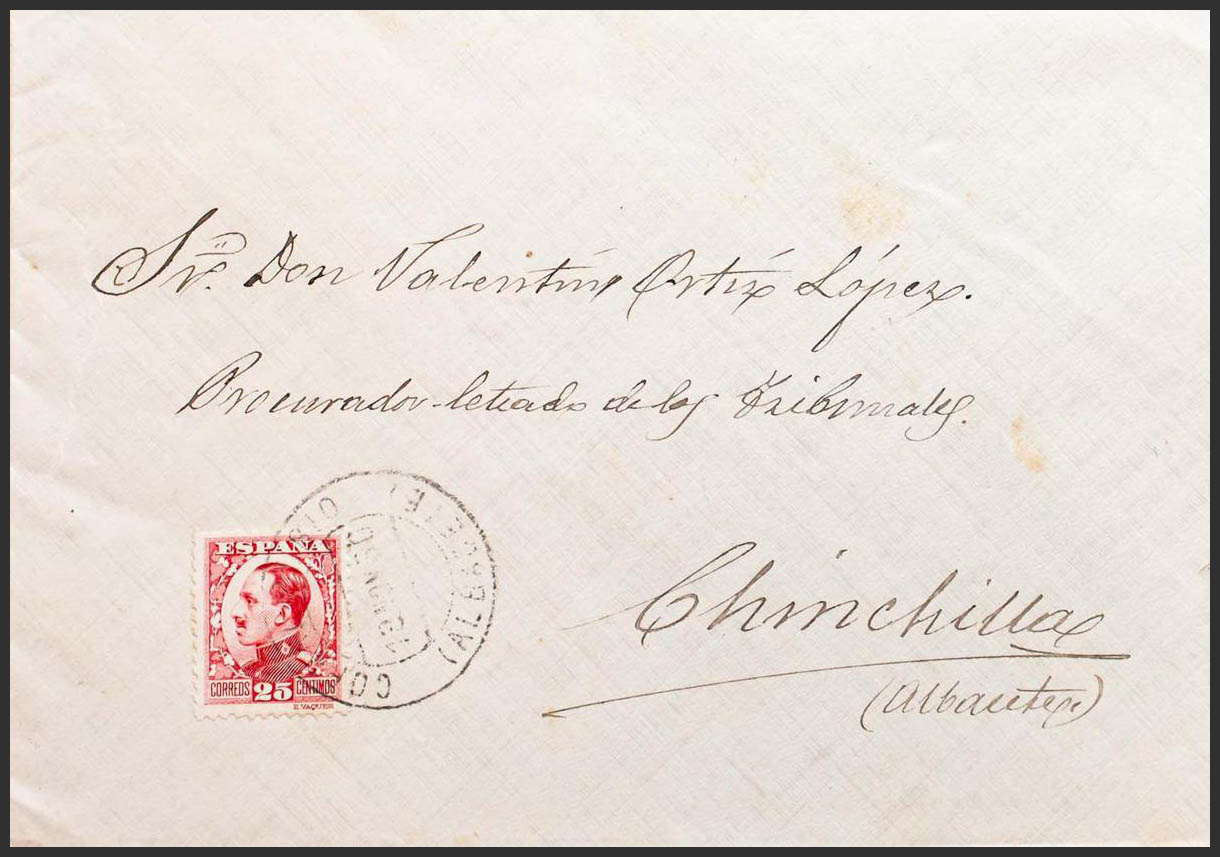 Sr. Don Valentín Ortíz López.
Procurador-letrado de los Tribunales.
ESPAÑA
CORREOS 25 CENTIMOS
E. VAQUER
(ALBACETE)
Chinchilla
(Albacete)